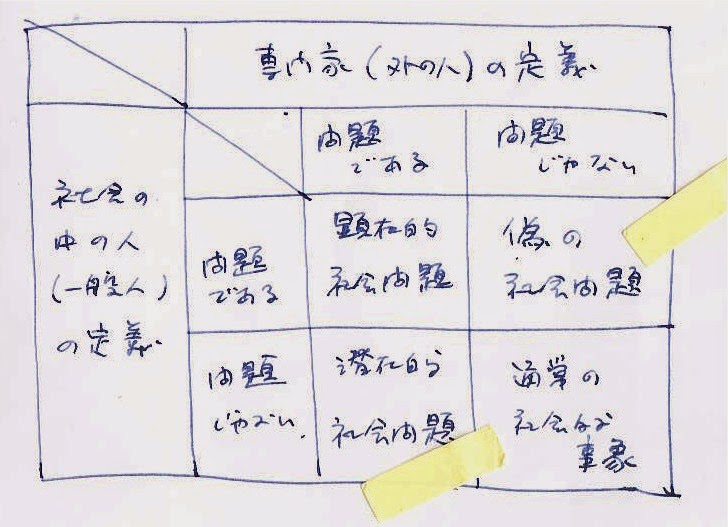 専門家(外の人)の定義
問題
である
問題
じゃない
社会の
中の人
(一般人)
の定義
問題
である
顕在的
社会問題
偽の
社会問題
問題
じゃない
潜在的
社会問題
通常の
社会的な
事象